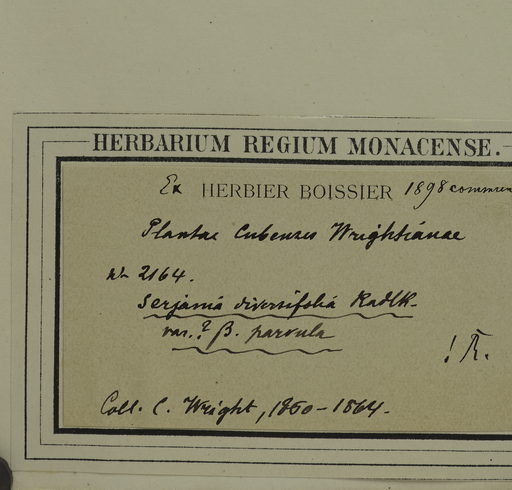 HERBARIUM REGIUM MONACENSE.
Ex HERBIER BOISSIER 1898
Plantae Cubenses Wrightianae
No 2164.
Serjania diversifolia Radlk.
var.? β. parvula
! R.
Coll. C. Wright, 1860–1864.